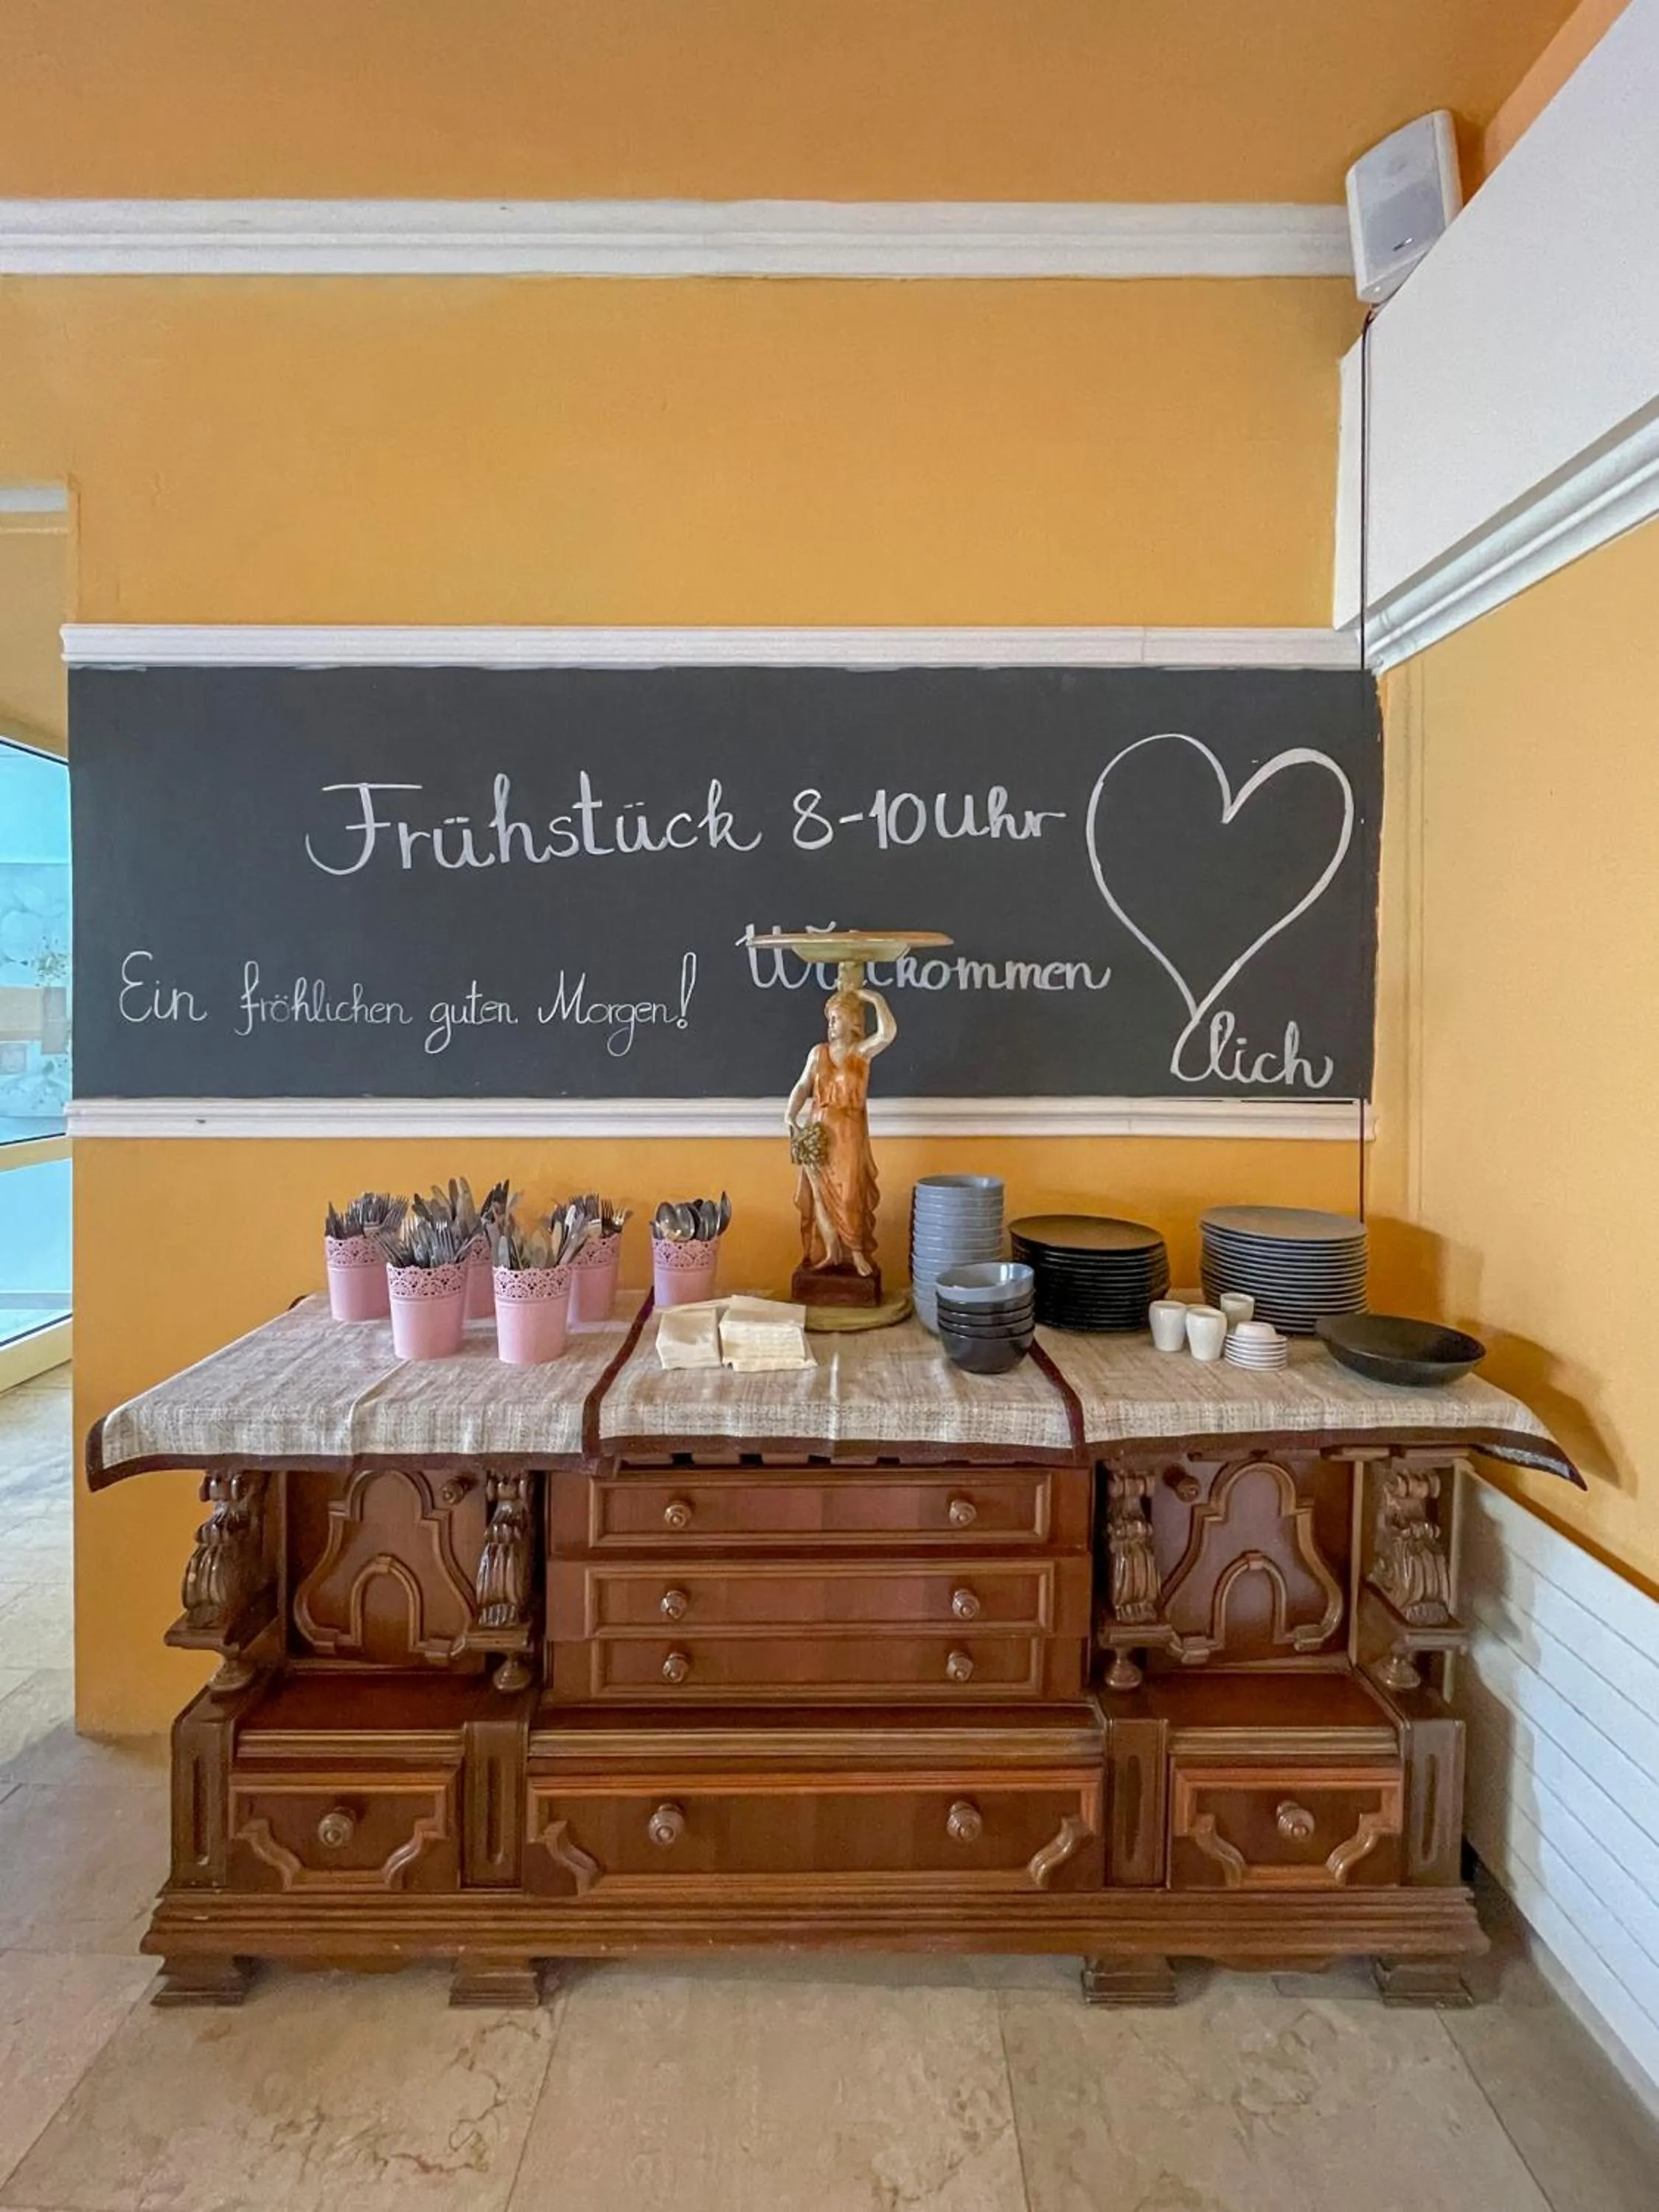 Frühstück 8-10 Uhr
Ein fröhlichen guten Morgen!
Willkommen
lich